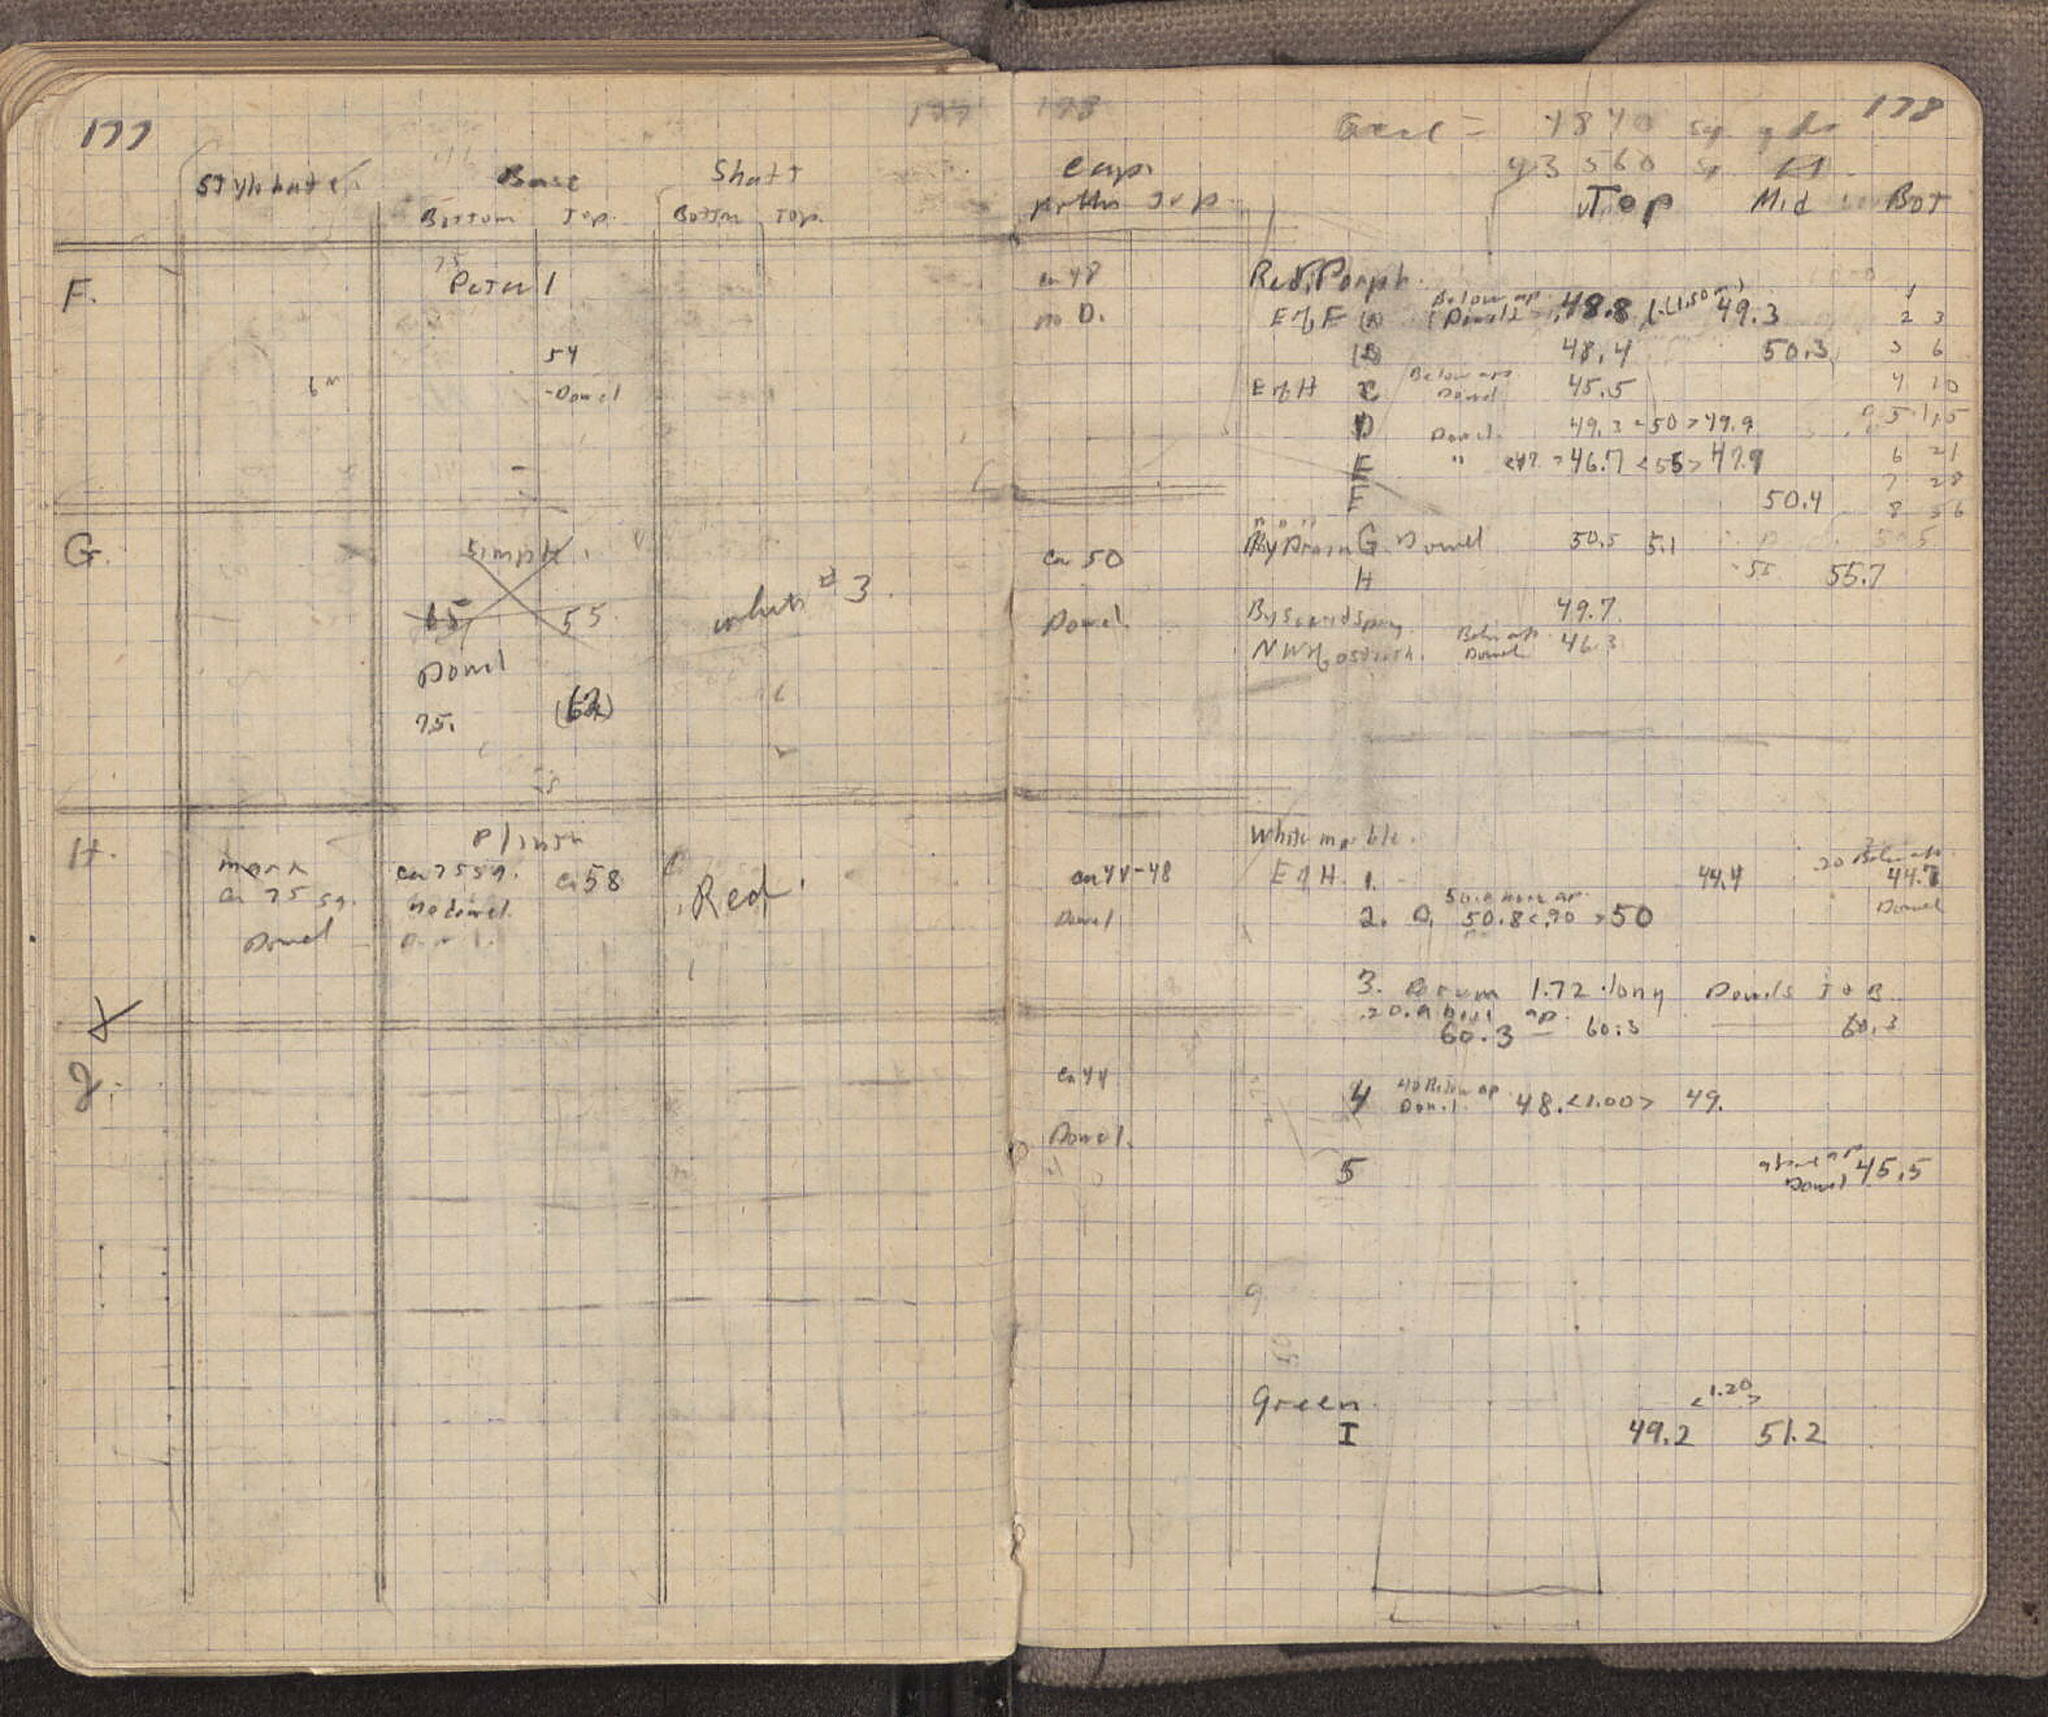 177
Stylobate
Base
Shaft
Bottom Top.
Bottom Top.
F.
75
54
-Dowel
G.
Simple.
65 55.
white #3.
Dowel
75. (62)
H.
Plinth
mark
ca 75 sq.
Dowel
ca 75 sq. ca 58
no dowel.
Red.
J.
178
= 4840 sq yds
43560 sq ft
Caps
Top
Top Mid Bot
ca 48
no D.
Red Porph.
E of F (A) Below ap. Dowels 48.8 (1.50) 49.3
(B) 48.4 50.3
E of H C Below ap. Dowel 45.5
D Dowel. 49.3 - 50 > 49.9
E " <47 > 46.7 <55> 47.9
F 50.4
1
2 3
3 6
4 10
5 15
6 21
7 28
8 36
ca 50
Dowel.
By Drain G. Dowel 50.5 51
H 55 55.7
49.7
46.3
Below ap. Dowel
White marble.
ca 44-48
Dowel
E of H. 1. 44.4 .20 Below ap. 44.7
Dowel
2. D. 50.8 <.90 > 50
3. Drum 1.72 long Dowels T & B.
.20 above ap.
60.3 — 60.3 — 60.3
ca 44
Dowel.
4 40 Below ap Dowel 48. <1.00> 49.
5 above ap Dowel 45.5
Green.
<1.20>
I 49.2 51.2